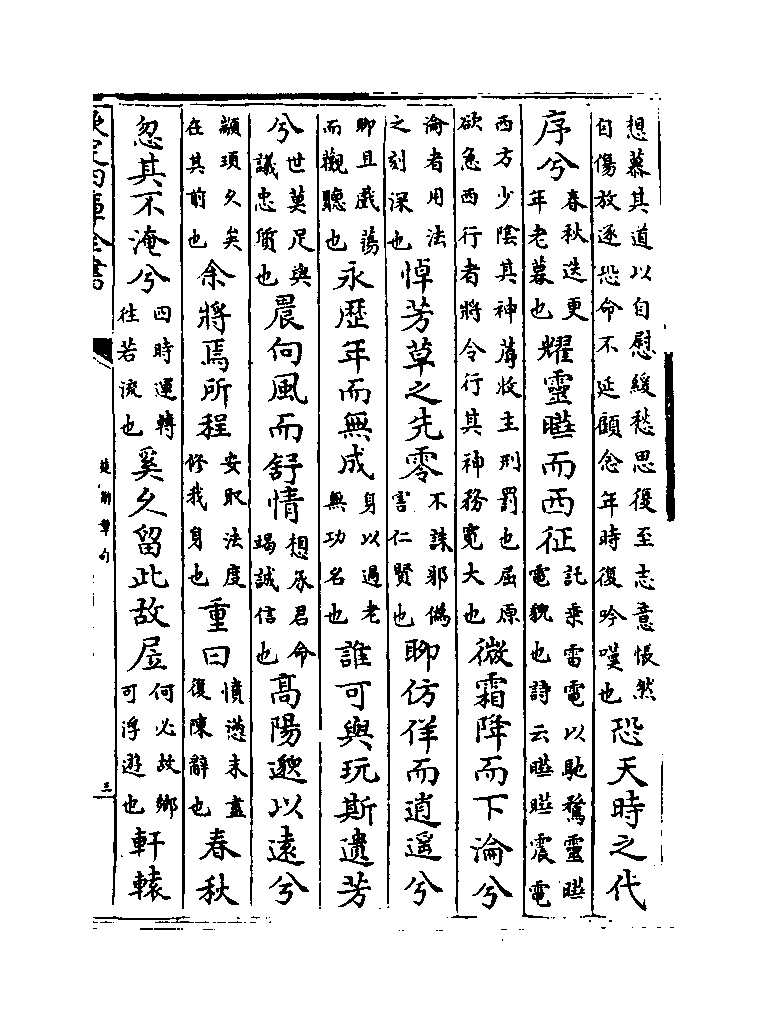 想慕其道以自慰緩愁思復至志意悵然
自傷放逐恐命不延顧念年時復吟嘆也
恐天時之代
序兮
春秋迭更
年老暮也
耀靈曄而西征
託乗雷電以馳騖靈曄
電貌也詩云曄曄震電
西方少陰其神蓐收主刑罰也屈原
欲急西行者將令行其神務寛大也
微霜降而下淪兮
淪者用法
之刻深也
悼芳草之先零
不誅邪偽
害仁賢也
聊仿佯而逍遥兮
聊且戲蕩
而觀聽也
永歴年而無成
身以過老
無功名也
誰可與玩斯遺芳
兮
世莫足與
議忠質也
晨向風而舒情
想承君命
竭誠信也
高陽邈以遠兮
顓頊久矣
在其前也
余將焉所程
安取法度
修我身也
重曰
憤懣未盡
復陳辭也
春秋
忽其不淹兮
四時運轉
往若流也
奚久留此故居
何必故鄉
可浮遊也
軒轅
欽定四庫全書
楚辭章句
三